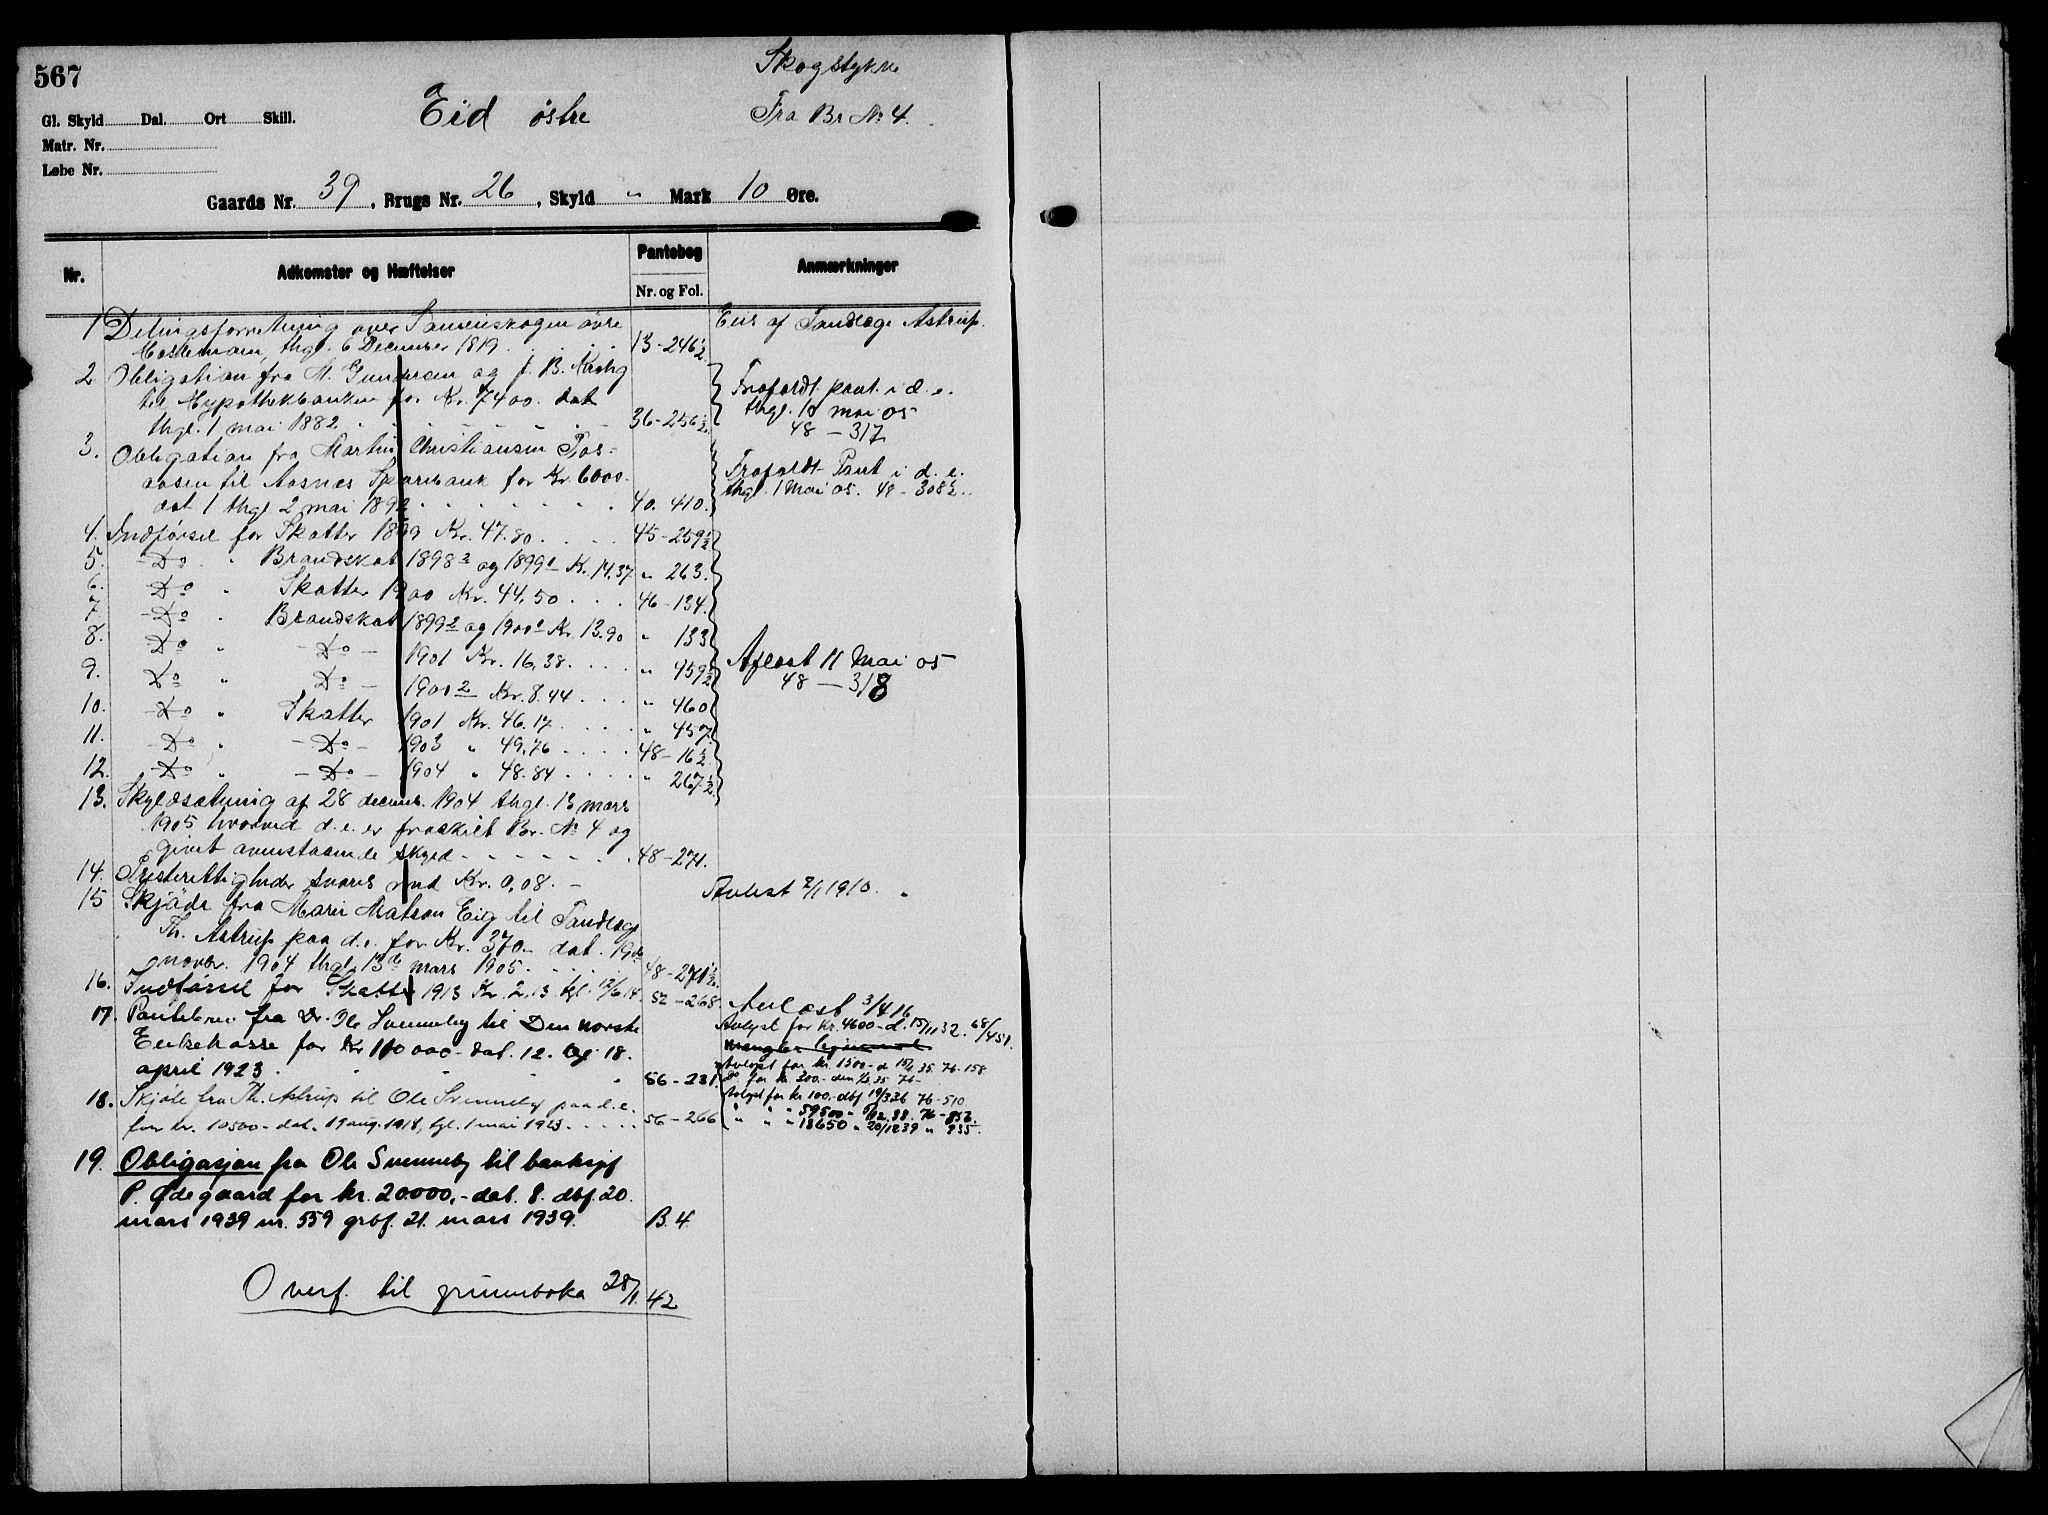 567
Skogstykke
Gl. Skyld Dal. Ort Skill.
Eid østre
Fra Br № 4.
Matr. Nr.
Løbe Nr.
Gaards Nr. 39, Brugs Nr. 26, Skyld " Mark 10 Øre.
Nr. Adkomster og Hæftelser Pantebog Nr. og Fol. Anmærkninger
1 Delingsforretning over øvre Eies af Tandlæge Astrup.
thgl. 6 December 1819 13-246½
2 Obligation fra M. Gundersen og J. B. Krohg Frafaldt pant i d. e.
til Hypothekbanken for Kr. 7400. dat thgl. 10 mai 05
thgl. 1 mai 1882 36-256½ 48-317
3. Obligation fra Martin Christiansen
til Aasnes Sparebank for Kr. 6000 Frafaldt Pant i d. e.
dat 1 thgl 2 mai 1892 40. 410. thgl. 1 Mai 05. 48-308½
4. Indførsel for Skatter 1899 Kr. 47.80 45-259½
5. Do " Brandskat 1898² og 1899¹ Kr. 14,37 " 263.
6. Do " Skatter 1900 Kr. 44,50 46-134.
7 Do " Brandskat 1899² og 1900¹ Kr. 13.90 " 133
8. Do " Do 1901 Kr. 16,38 " 459½ Aflæst 11 Mai 05
9. Do " Do 1900² Kr. 8.44 " 460 48-318
10. Do " Skatter 1901 Kr. 46.17 " 457.
11. Do " Do 1903 " 49,76 48-16½
12. Do " Do 1904 " 48.84 " 267½
13. Skyldsætning af 28 decemb. 1904 thgl. 13 mars
1905 hvorved d. e. er fraskilt Br. № 4 og
givet ovenstaaende skyld 48-271.
14. Presterettigheder svares med Kr. 0,08. Avlest 7/1 1910.
15 Skjøde fra Marie Matson Eig til Tandlæge
Th. Astrup paa d. e. for Kr. 370 dat. 19de
novbr. 1904 thgl. 13de mars 1905 48-271½
16. Indførsel for Skatter 1913 Kr. 2,13 tgl. 12/6 14. 52-268 Avlæst 3/4 16
17. Pantebrev fra Dr. Ole Svenneby til Den norske Avlyst for kr. 4600 - d. 15/11 32. 68/451.
Enkekasse for Kr 110 000 - dat. 12. tgl. 18.
april 1923 56-231. Avlyst for kr. 1500 - d 15/1 35. 76-158
Do for kr. 300,- den 35 76-
18. Skjøte fra Th. Astrup til Ole Svenneby paa d. e. Avlyst for kr. 100.- dbf 19/3 36 76-510
for kr. 10500 - dat. 19 aug. 1918, tgl. 1 mai 1923 56-266 " " " 59500 " 5/12 38. 76-852.
" " " 18650 " 20/12 39 " 935.
19. Obligasjon fra Ole Svenneby til banksjef
P. Ødegaard for kr. 20.000,- dat. 8. dbf. 20.
mars 1939 nr. 559 grbf. 21. mars 1939. B. 4.
Overf. til grunnboka 28/1. 42